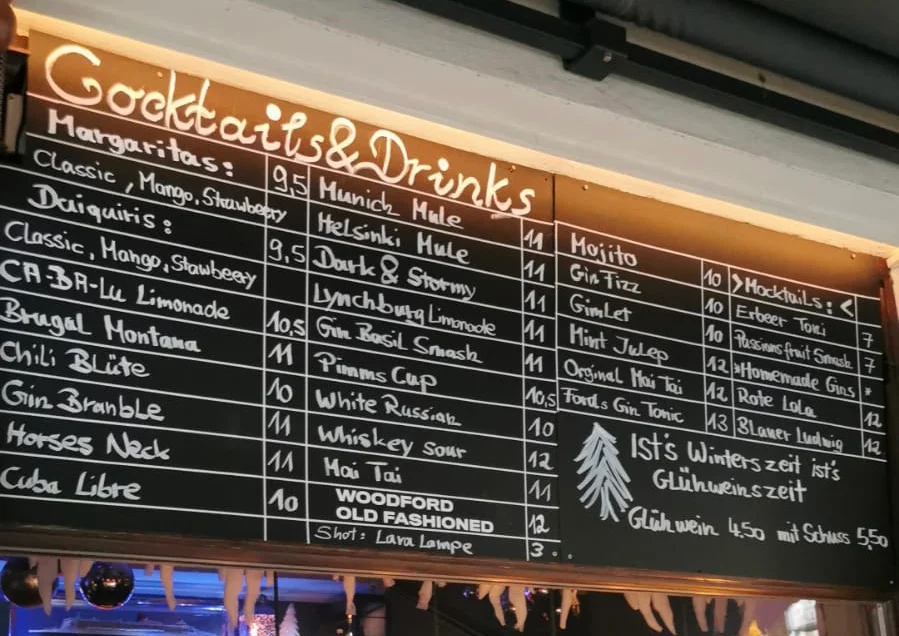 Cocktails & Drinks
Margaritas:
Classic, Mango, Strawbeery 9,5
Daiquiris:
Classic, Mango, Stawbeery 9,5
CA-BA-Lu Limonade 10,5
Brugal Montana 11
Chili Blüte 10
Gin Bramble 11
Horses Neck 11
Cuba Libre 10
Munich Mule 11
Helsinki Mule 11
Dark & Stormy 11
Lynchburg Limonade 11
Gin Basil Smash 11
Pimms Cup 10,5
White Russian 10
Whiskey sour 12
Mai Tai 11
WOODFORD
OLD FASHIONED 12
Shot: Lava Lampe 3.
Mojito 10
Gin Fizz 10
Gimlet 10
Mint Julep 12
Orginal Mai Tai 12
Fords Gin Tonic 13
>Mocktails:<
Erbeer Toni 7
Passionsfruit Smash 7
*Homemade Gins *
Rote Lola 12
Blauer Ludwig 12
IST's Winterszeit ist's
Glühweinszeit
Glühwein 4.50 mit Schuss 5,50